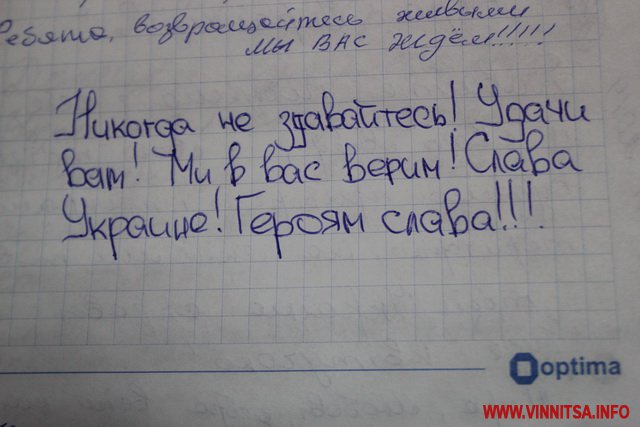 Ребята, возвращайтесь живыми
мы вас ждём!!!!!
Никогда не здавайтесь! Удачи
вам! Ми в вас верим! Слава
Украине! Героям слава!!!
optima
WWW.VINNITSA.INFO